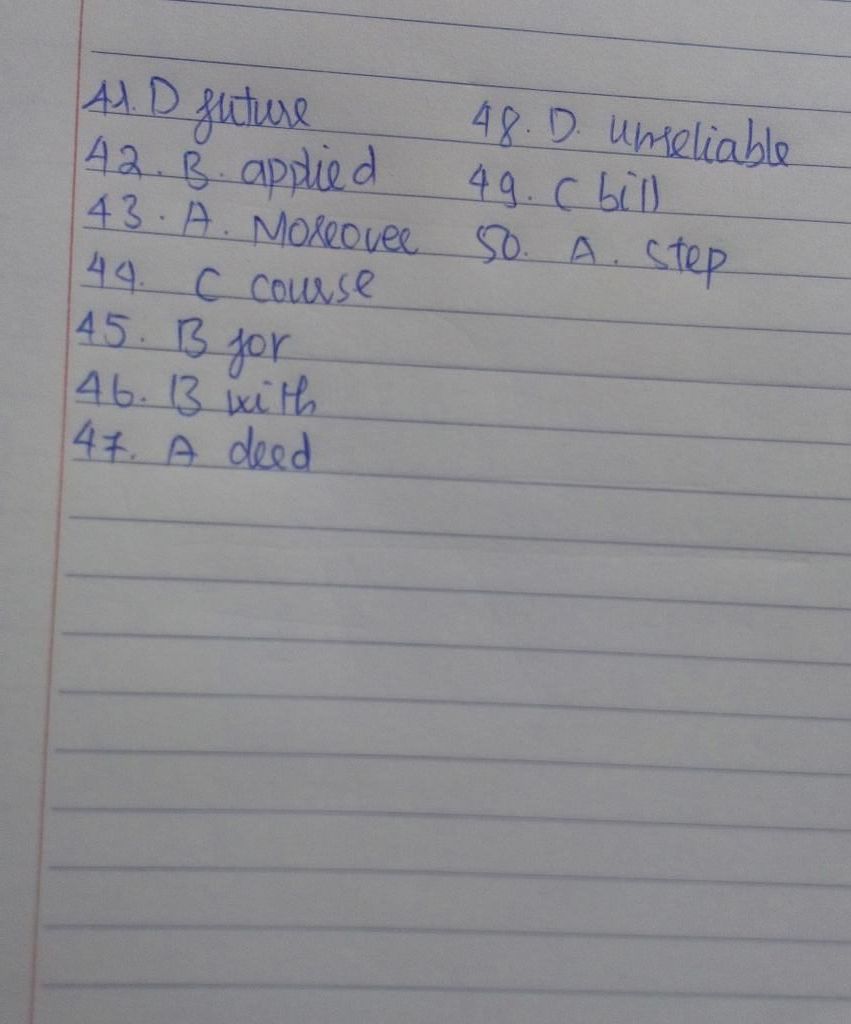 41. D future
42. B. applied
43. A. Moreover
44. C course
45. B for
46. B with
47. A deed
48. D. unreliable
49. C bill
50. A. step